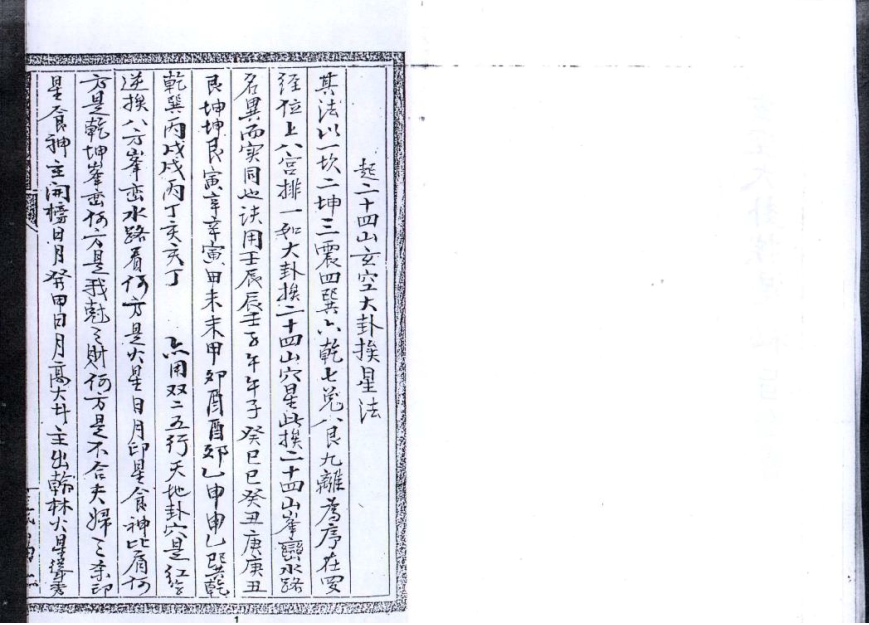 起二十四山玄空大卦挨星法
其法以一坎二坤三震四巽六乾七兌八艮九離為序在
經位上八宮排一如大卦挨二十四山穴星此挨二十四山峯巒水路
名異而实同也法用壬辰辰壬子午午子癸巳巳癸丑庚庚丑
艮坤坤艮寅辛辛寅甲未未甲卯酉酉卯乙申申乙巽乾
乾巽丙戌戌丙丁亥亥丁 亦用双二五行天地卦穴是红字
逆挨八方峯巒水路看何方是火星日月印星食神比肩何
方是乾坤峯巒何方是我尅之財何方是不合夫婦之杀印
星食神主開榜日月癸甲日月高大主出翰林火星聳秀
1